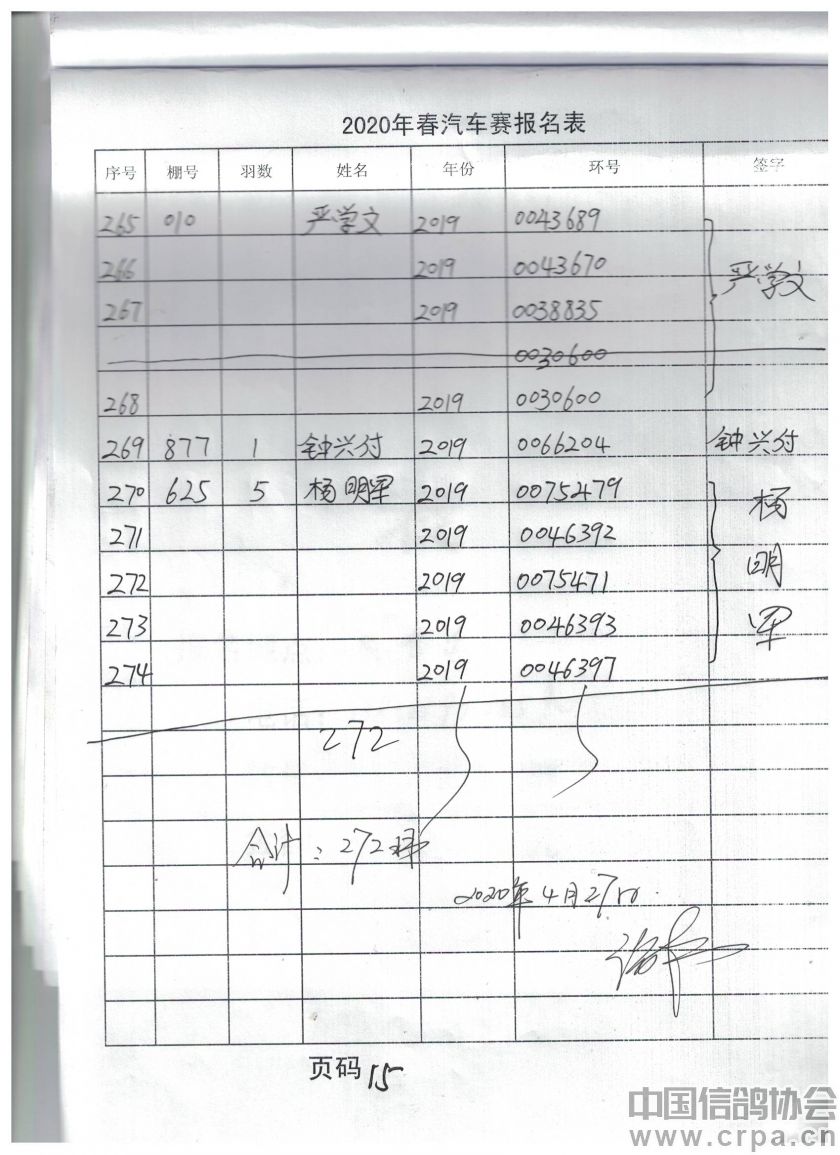 2020年春汽车赛报名表
序号 棚号 羽数 姓名 年份 环号 签字
265 010 严学文 2019 0043689
266 2019 0043670 严学文
267 2019 0038835
0030600
268 2019 0030600
269 877 1 钟兴付 2019 0066204 钟兴付
270 625 5 杨明军 2019 0075479 杨
271 2019 0046392
272 2019 0075471 明
273 2019 0046393 军
274 2019 0046397
272
合计:272
2020年4月27日
页码15
中国信鸽协会
www.crpa.cn